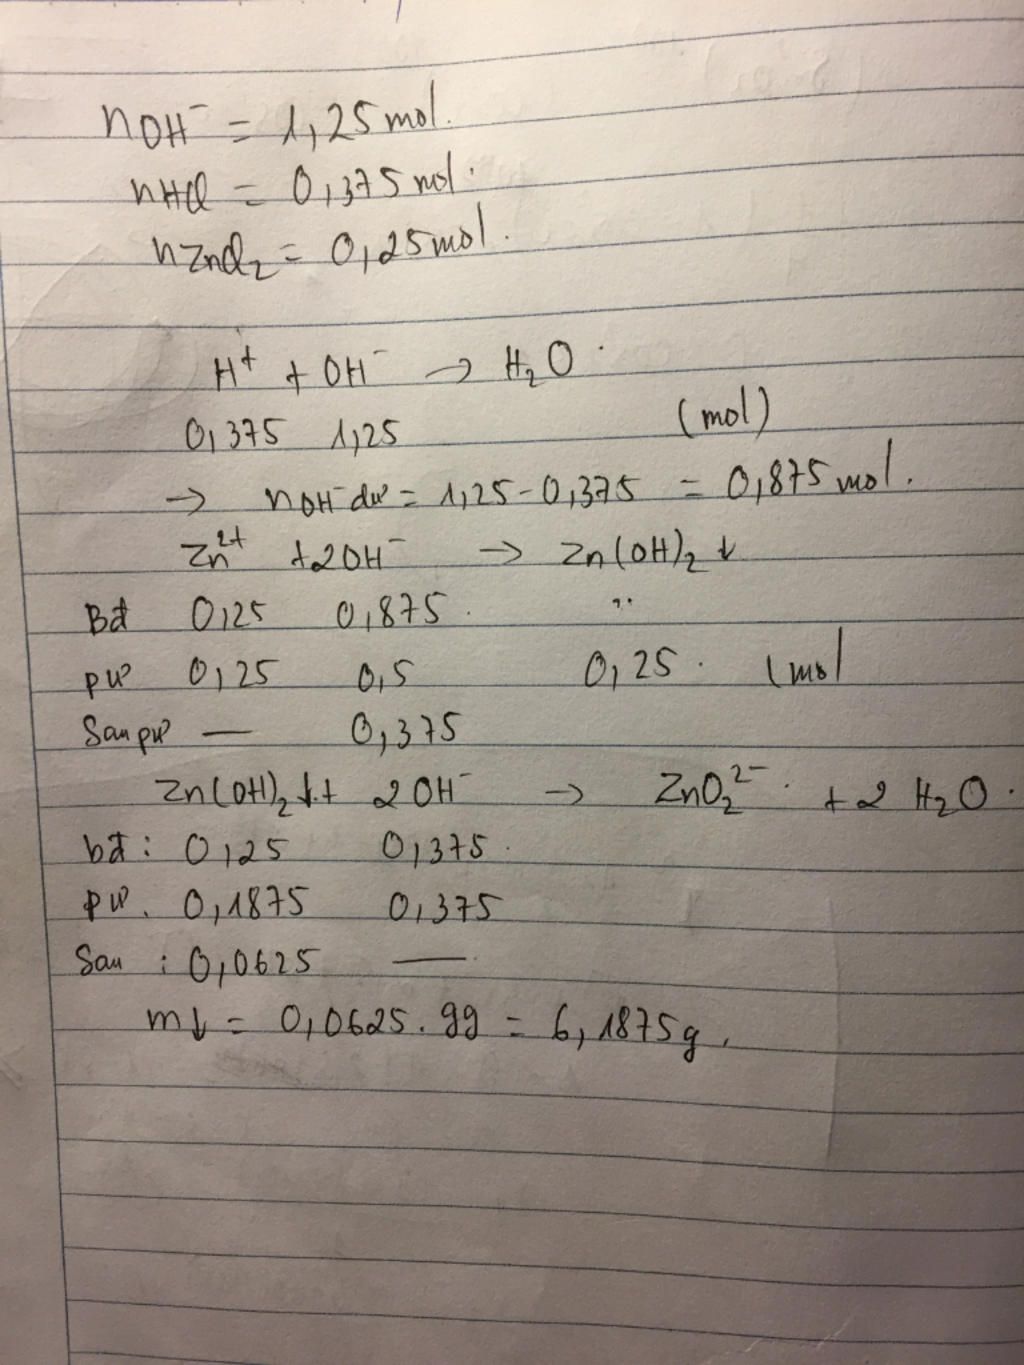 nOH⁻ = 1,25 mol.
nHCl = 0,375 mol.
nZnCl₂ = 0,25 mol.
H⁺ + OH⁻ → H₂O
0,375 1,25 (mol)
→ nOH⁻ dư = 1,25 - 0,375 = 0,875 mol.
Zn²⁺ + 2OH⁻ → Zn(OH)₂ ↓
Bđ 0,25 0,875
pư 0,25 0,5 0,25 (mol
Sau pư — 0,375
Zn(OH)₂ ↓ + 2OH⁻ → ZnO₂²⁻ + 2H₂O.
bđ: 0,25 0,375
pư. 0,1875 0,375
Sau : 0,0625 —
m↓ = 0,0625 . 99 = 6,1875g.